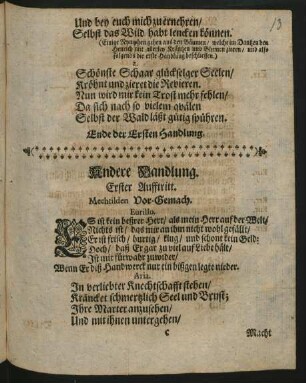 13
Und bey euch mich zu ernehren/
Selbst das Wild habt lencken können.
(Einige Nymphen gehen aus den Bäumen/ welche im Dantzen den
Heinrich mit allerley Kräntzen und Blumen zieren/ und also
folgends die erste Handlung beschliessen.)
2.
Schönste Schaar glückselger Seelen/
Kröhnt und zieret die Revieren.
Nun wird mir kein Trost mehr fehlen/
Da sich nach so vielem qvälen
Selbst der Wald läßt gütig spühren.
Ende der Ersten Handlung.
Andere Handlung.
Erster Aufftritt.
Mechtilden Vor-Gemach.
Eurillo.
ES ist kein beßrer Herr/ als mein Herr auf der Welt/
Nichts ist / das mir an ihm nicht wohl gefällt/
Er ist frisch/ hurtig/ klug/ und schont kein Geld:
Doch/ daß Er gar zu viel auf Liebe hält/
Ist mir fürwahr zuwider/
Wenn Er diß Handwerck nur ein bißgen legte nieder.
Aria.
In verliebter Knechtschafft stehen/
Kräncket schmertzlich Seel und Brust;
Ihre Marter anzusehen/
Und mit ihnen untergehen/
c
Macht